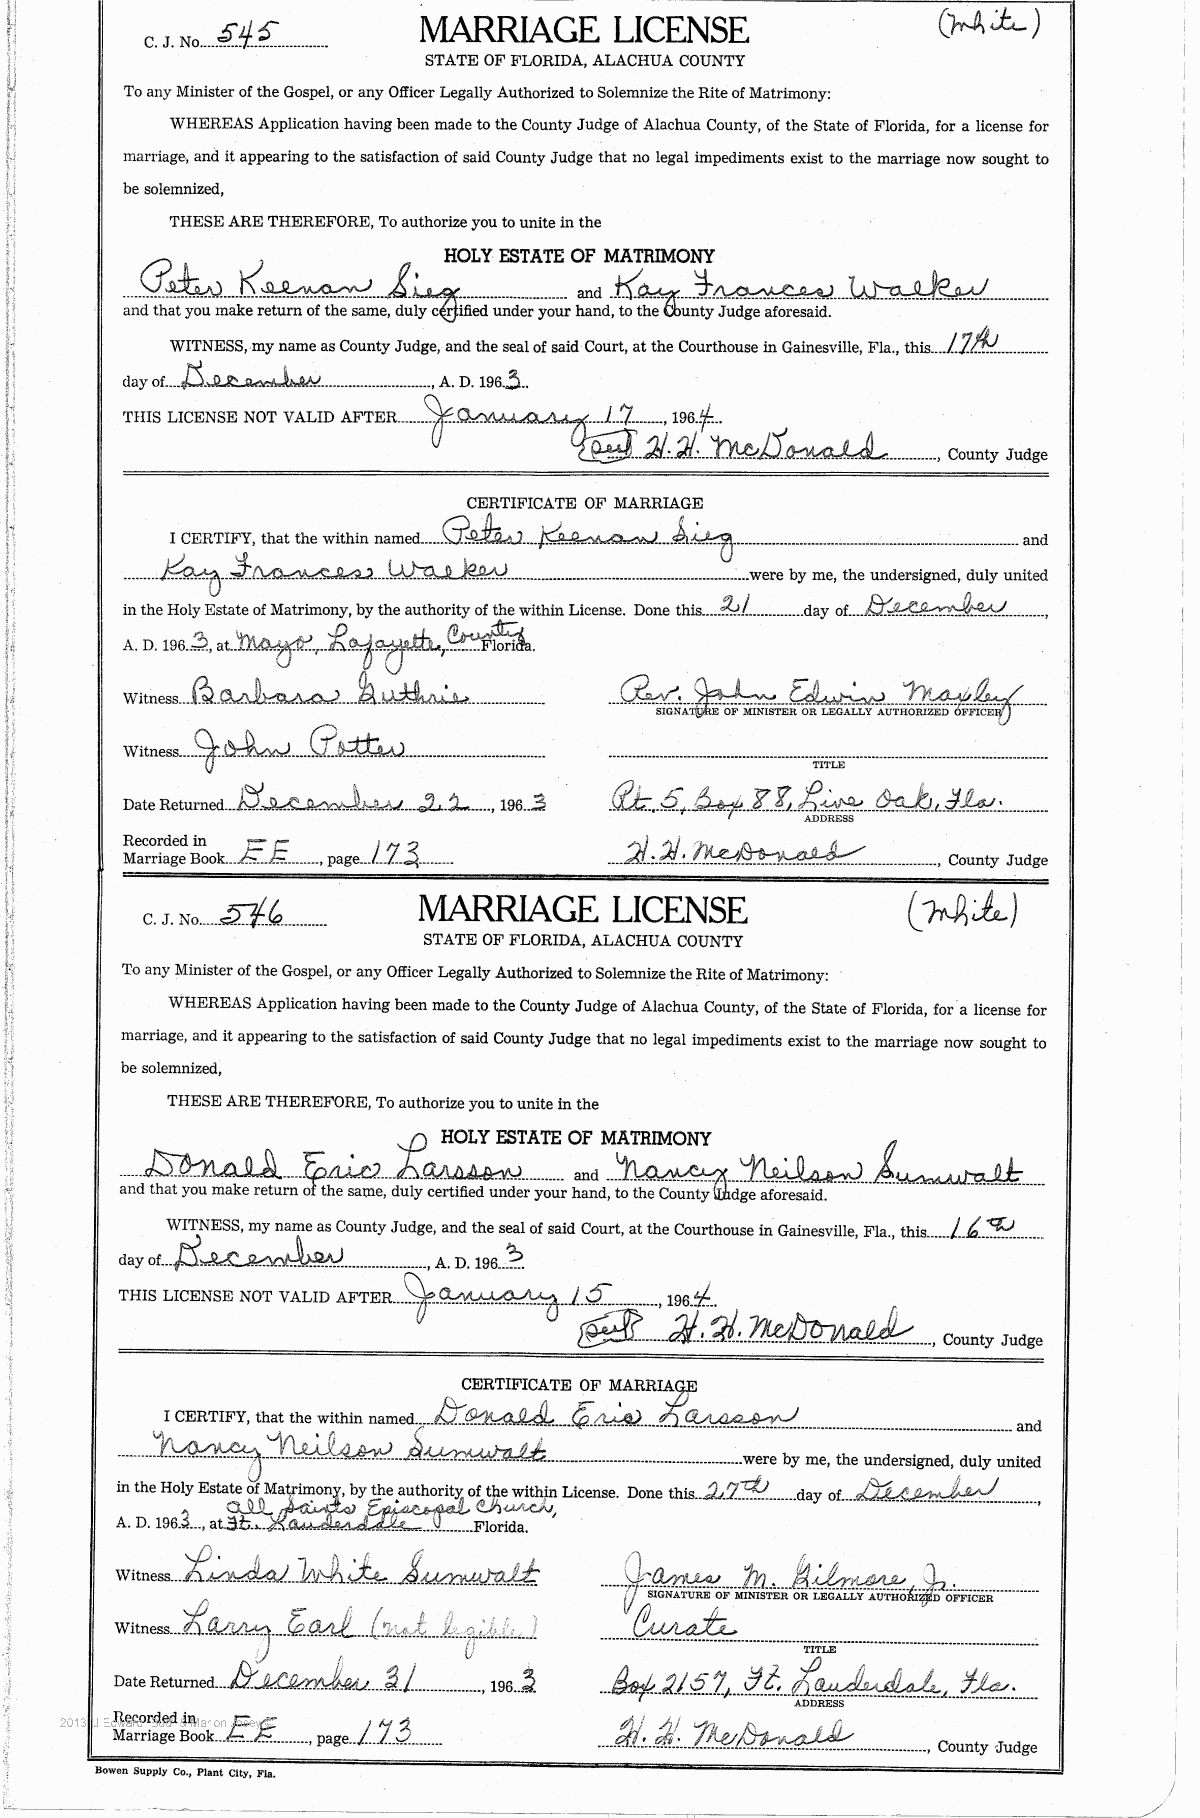 C. J. No. 545 MARRIAGE LICENSE (White)
STATE OF FLORIDA, ALACHUA COUNTY
To any Minister of the Gospel, or any Officer Legally Authorized to Solemnize the Rite of Matrimony:
WHEREAS Application having been made to the County Judge of Alachua County, of the State of Florida, for a license for
marriage, and it appearing to the satisfaction of said County Judge that no legal impediments exist to the marriage now sought to
be solemnized,
THESE ARE THEREFORE, To authorize you to unite in the
HOLY ESTATE OF MATRIMONY
Peter Keenan Sieg and Kay Frances Walker
and that you make return of the same, duly certified under your hand, to the County Judge aforesaid.
WITNESS, my name as County Judge, and the seal of said Court, at the Courthouse in Gainesville, Fla., this 17th
day of December, A. D. 1963.
THIS LICENSE NOT VALID AFTER January 17, 1964.
Seal H. H. McDonald, County Judge
CERTIFICATE OF MARRIAGE
I CERTIFY, that the within named Peter Keenan Sieg and
Kay Frances Walker were by me, the undersigned, duly united
in the Holy Estate of Matrimony, by the authority of the within License. Done this 21 day of December,
A. D. 1963, at Mayo, Lafayette, County Florida.
Witness Barbara Guthrie Rev. John Edwin Maxley
SIGNATURE OF MINISTER OR LEGALLY AUTHORIZED OFFICER
Witness John Potter
TITLE
Date Returned December 22, 1963 Rt. 5, Box 88, Live Oak, Fla.
ADDRESS
Recorded in
Marriage Book EE, page 173 H. H. McDonald, County Judge
C. J. No. 546 MARRIAGE LICENSE (White)
STATE OF FLORIDA, ALACHUA COUNTY
To any Minister of the Gospel, or any Officer Legally Authorized to Solemnize the Rite of Matrimony:
WHEREAS Application having been made to the County Judge of Alachua County, of the State of Florida, for a license for
marriage, and it appearing to the satisfaction of said County Judge that no legal impediments exist to the marriage now sought to
be solemnized,
THESE ARE THEREFORE, To authorize you to unite in the
HOLY ESTATE OF MATRIMONY
Donald Eric Larsson and Nancy Neilson Sumwalt
and that you make return of the same, duly certified under your hand, to the County Judge aforesaid.
WITNESS, my name as County Judge, and the seal of said Court, at the Courthouse in Gainesville, Fla., this 16th
day of December, A. D. 1963.
THIS LICENSE NOT VALID AFTER January 15, 1964.
Seal H. H. McDonald, County Judge
CERTIFICATE OF MARRIAGE
I CERTIFY, that the within named Donald Eric Larsson and
Nancy Neilson Sumwalt were by me, the undersigned, duly united
in the Holy Estate of Matrimony, by the authority of the within License. Done this 27th day of December,
All Saints Episcopal Church,
A. D. 1963, at Ft. Lauderdale Florida.
Witness Linda White Sumwalt James M. Gilmore, Jr.
SIGNATURE OF MINISTER OR LEGALLY AUTHORIZED OFFICER
Witness Larry Earl (not legible) Curate
TITLE
Date Returned December 31, 1963 Box 2157, Ft. Lauderdale, Fla.
ADDRESS
Recorded in
Marriage Book EE, page 173 H. H. McDonald, County Judge
Bowen Supply Co., Plant City, Fla.